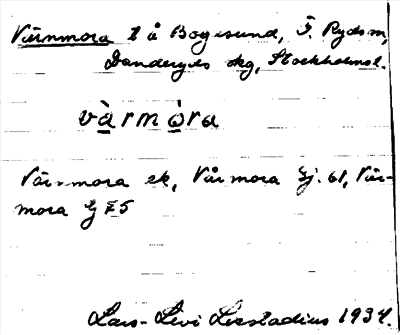 Värnmora t å Bogesund, Ö. Ryds sn,
Danderyds skg, Stockholms l.
vàrmòra
Värnmora ek, Vårmora Gj. 61, Vär-
mora G 75
Lars-Levi Læstadius 1934.